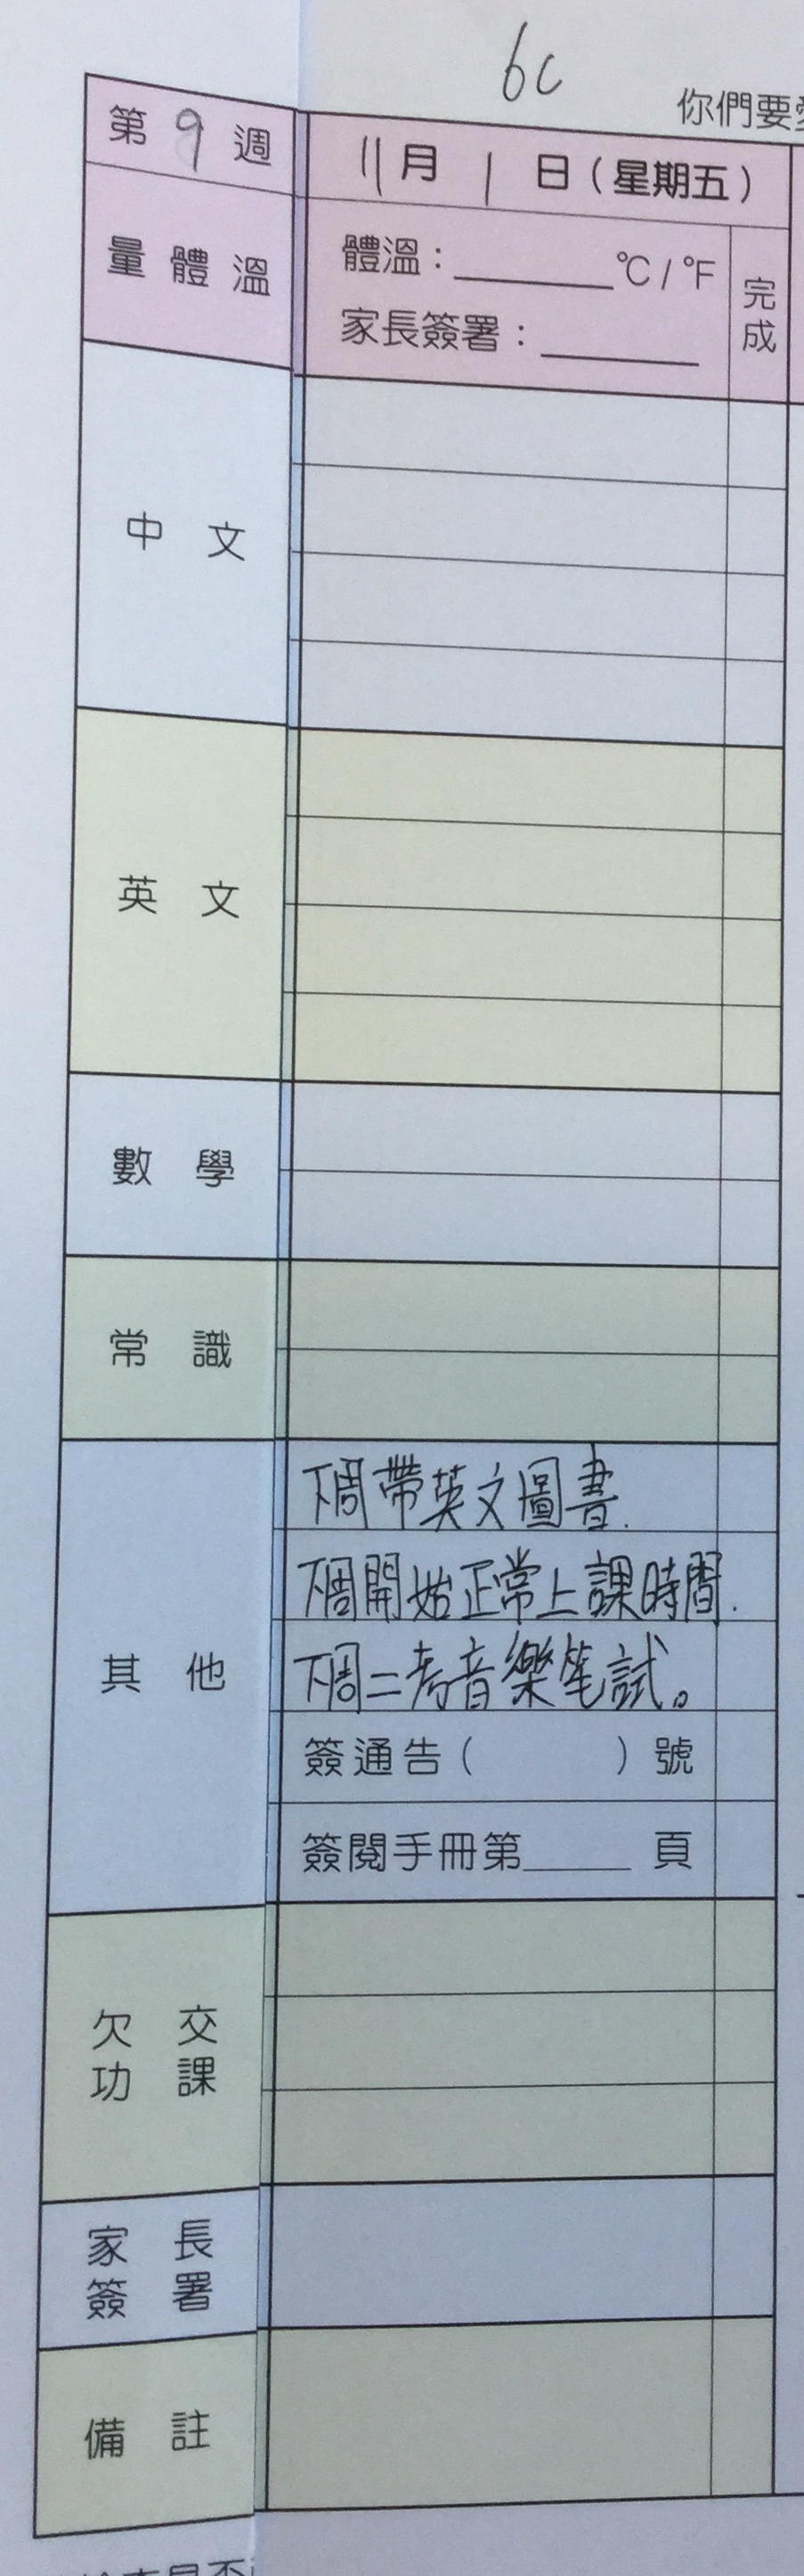 6C
你們要
第 9 週
11月 1 日(星期五)
量體溫
體溫:______°C / °F
家長簽署:______
完成
中文
英文
數學
常識
其他
下周帶英文圖書.
下周開始正常上課時間.
下周二考音樂笔試。
簽通告( )號
簽閱手冊第_____ 頁
欠交
功課
家長
簽署
備註